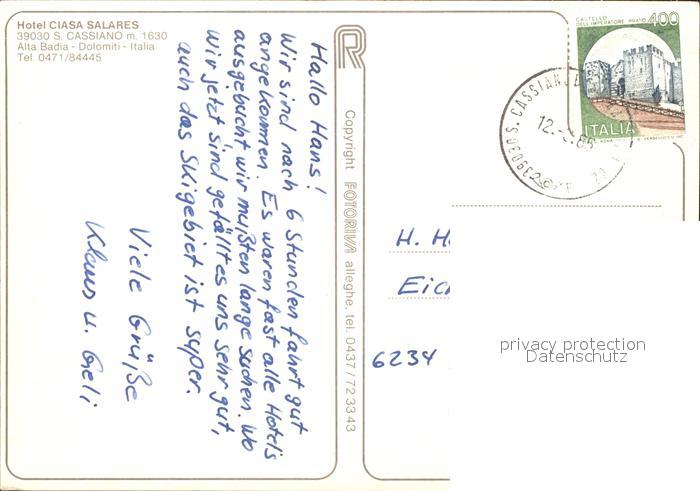 Hotel CIASA SALARES
39030 S. CASSIANO m. 1630
Alta Badia - Dolomiti - Italia
Tel. 0471/84445
Hallo Hans!
Wir sind nach 6 Stunden fahrt gut
angekommen. Es waren fast alle Hotels
ausgebucht wir mußten lange suchen. Wo
wir jetzt sind gefällt es uns sehr gut,
auch das Skigebiet ist super.
Viele Grüße
Klaus u. Geli
Copyright FOTORIVA alleghe, tel. 0437/723343
CASTELLO
DELL'IMPERATORE PRATO 400
ITALIA
39030 S. CASSIANO
12.
H. H
Eic
6234
privacy protection
Datenschutz